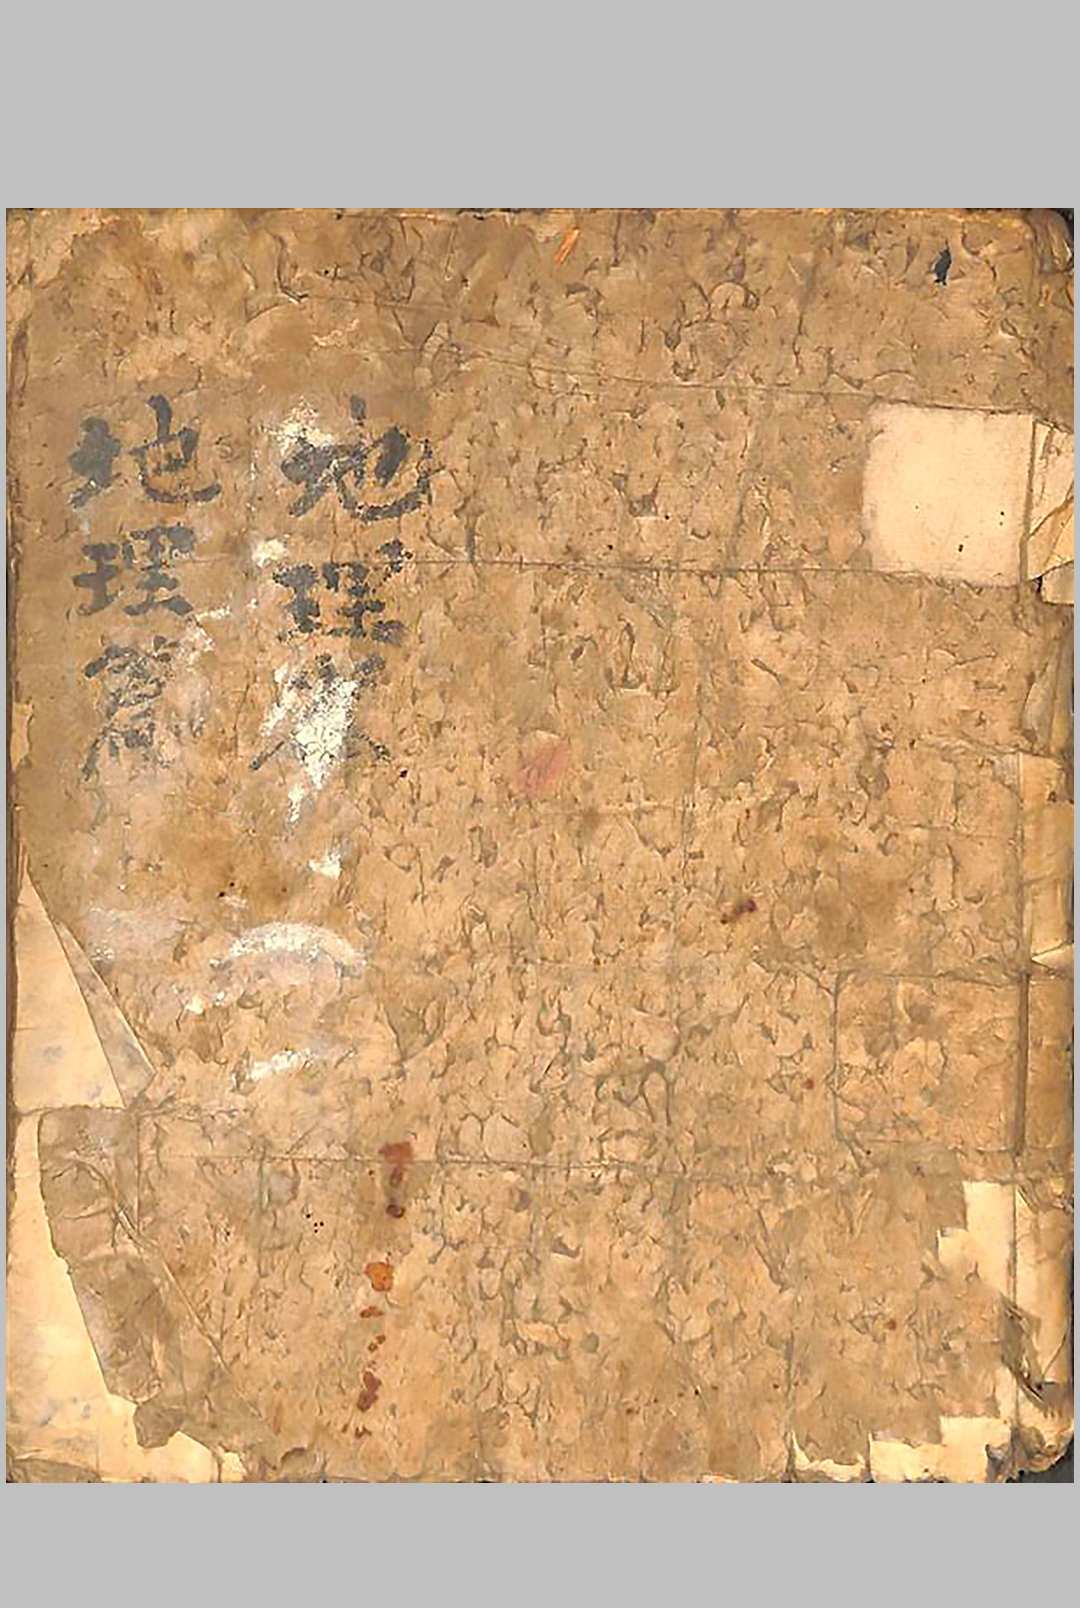 地理
地理篇